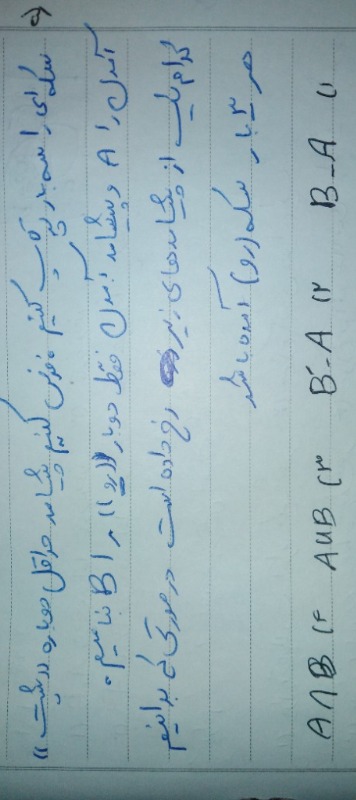 ه) سکه‌ای را سه بار پرتاب می‌کنیم. فرض کنیم پیشامد حداقل دوبار «پشت»
آمدن را A و پیشامد آمدن فقط دوبار «رو» را B بنامیم.
کدام یک از پیشامدهای زیر رخ داده است در صورتی که بدانیم
هر ۳ بار سکه (رو) آمده باشد
۱) B-A ۲) B'-A ۳) A∪B ۴) A∩B